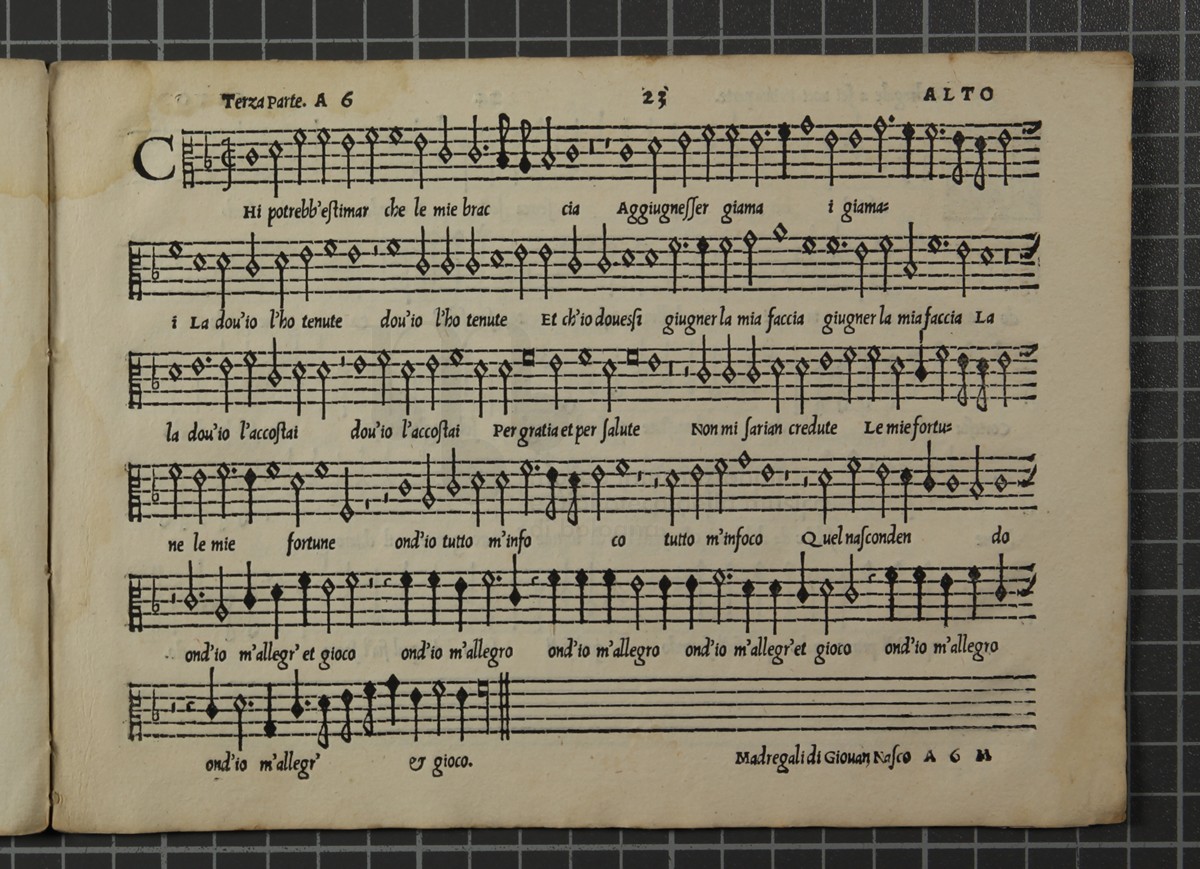 Terza parte. A 6 23 ALTO
CHi potrebb'estimar che le mie brac cia Aggiugnesser giama i giama=
i La dou'io l'ho tenute dou'io l'ho tenute Et ch'io douessi giugner la mia faccia giugner la mia faccia La
la dou'io l'accostai dou'io l'accostai Per gratia et per salute Non mi sarian credute Le mie fortu=
ne le mie fortune ond'io tutto m'info co tutto m'infoco Quel nasconden do
ond'io m'allegr' et gioco ond'io m'allegro ond'io m'allegro ond'io m'allegr'et gioco ond'io m'allegro
ond'io m'allegr' & gioco.
Madregali di Giouan Nasco A 6 M